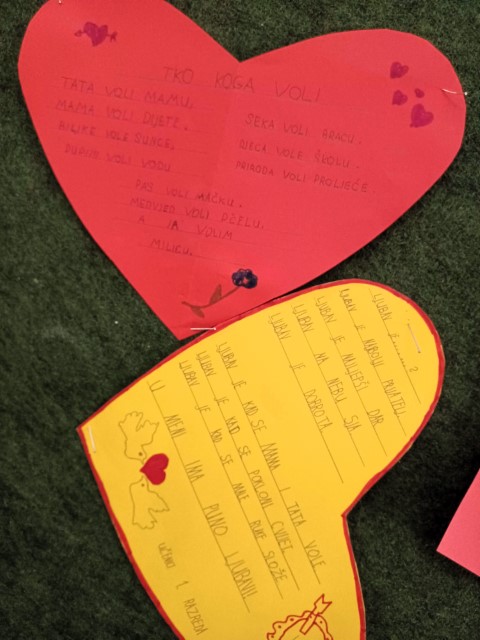 TKO KOGA VOLI
TATA VOLI MAMU,
MAMA VOLI DIJETE.
BILJKE VOLE SUNCE,
DUPIN VOLI VODU
SEKA VOLI BRACU.
DJECA VOLE ŠKOLU.
PRIRODA VOLI PROLJEĆE
PAS VOLI MAČKU.
MEDVJED VOLI PČELU,
A JA VOLIM
MILICU.
LJUBAV ?
LJUBAV JE NAJBOLJI PRIJATELJ
LJUBAV JE NAJLJEPŠI DAR
LJUBAV NA NEBU SJA
LJUBAV JE DOBROTA
LJUBAV JE KAD SE MAMA I TATA VOLE
LJUBAV JE KAD SE POKLONI CVIJET
LJUBAV JE KAD SE MALE RUKE SLOŽE
U MENI IMA PUNO LJUBAVI!
UČENICI 1. RAZREDA